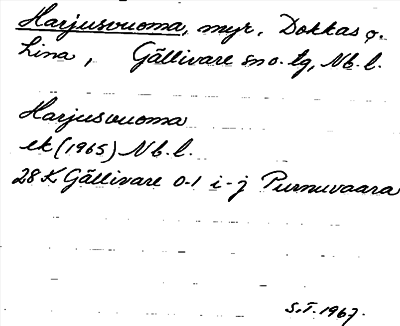 Harjusvuoma, myr, Dokkas o.
Lina, Gällivare sn o. tg, Nb. l.
Harjusvuoma
ek (1965) Nb. l.
28 K Gällivare 0-1 i-j Purnuvaara
S.T. 1967.